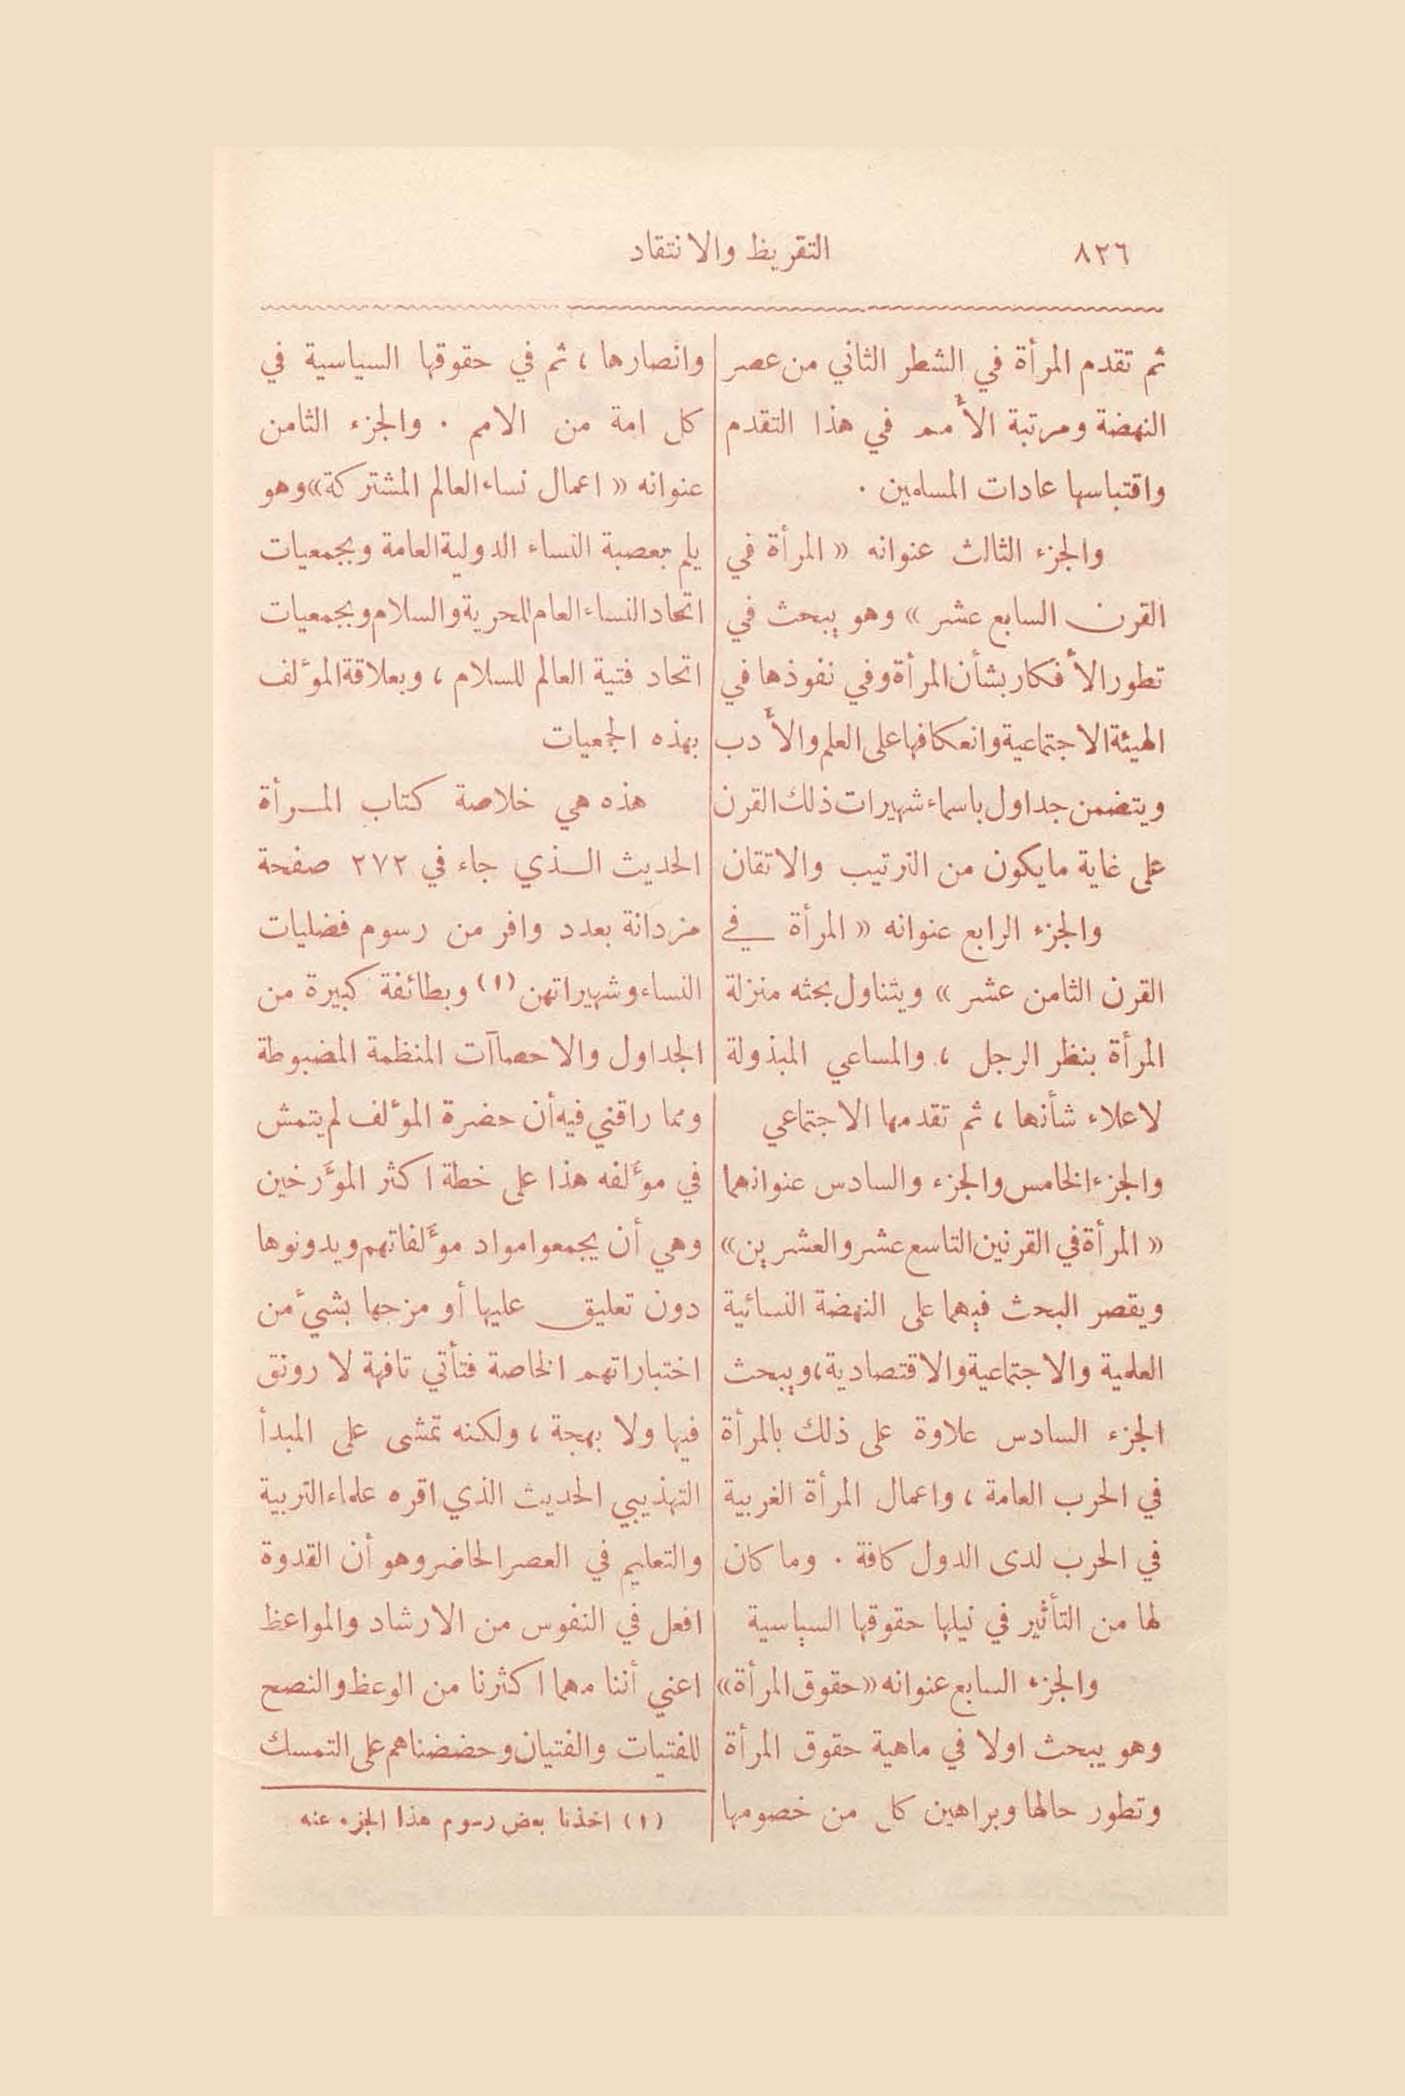 ٨٢٦
التقريظ والانتقاد
ثم تقدم المرأة في الشطر الثاني من عصر
النهضة ومرتبة الأمم في هذا التقدم
واقتباسها عادات المسلمين .
والجزء الثالث عنوانه « المرأة في
القرن السابع عشر » وهو يبحث في
تطور الأفكار بشأن المرأة وفي نفوذها في
الهيئة الاجتماعية وانعكافها على العلم والأدب
ويتضمن جداول باسماء شهيرات ذلك القرن
على غاية ما يكون من الترتيب والاتقان
والجزء الرابع عنوانه « المرأة في
القرن الثامن عشر » ويتناول بحثه منزلة
المرأة بنظر الرجل ، والمساعي المبذولة
لاعلاء شأنها ، ثم تقدمها الاجتماعي
والجزء الخامس والجزء والسادس عنوانهما
« المرأة في القرنين التاسع عشر والعشرين »
ويقصر البحث فيهما على النهضة النسائية
العلمية والاجتماعية والاقتصادية ، ويبحث
الجزء السادس علاوة على ذلك بالمرأة
في الحرب العامة ، واعمال المرأة الغربية
في الحرب لدى الدول كافة . وما كان
لها من التأثير في نيلها حقوقها السياسية
والجزء السابع عنوانه « حقوق المرأة »
وهو يبحث اولا في ماهية حقوق المرأة
وتطور حالها وبراهين كل من خصومها
وانصارها ، ثم في حقوقها السياسية في
كل امة من الامم . والجزء الثامن
عنوانه « اعمال نساء العالم المشتركة » وهو
يلم بعصبة النساء الدولية العامة وبجمعيات
اتحاد النساء العام للحرية والسلام وبجمعيات
اتحاد فتية العالم للسلام ، وبعلاقة المؤلف
بهذه الجمعيات
هذه هي خلاصة كتاب المرأة
الحديث الذي جاء في ٢٧٢ صفحة
مزدانة بعدد وافر من رسوم فضليات
النساء وشهيراتهن (١) وبطائفة كبيرة من
الجداول والاحصاآت المنظمة المضبوطة
ومما راقني فيه أن حضرة المؤلف لم يتمش
في مؤلفه هذا على خطة اكثر المؤرخين
وهي أن يجمعوا مواد مؤلفاتهم ويدونوها
دون تعليق عليها أو مزجها بشيء من
اختباراتهم الخاصة فتأتي تافهة لا رونق
فيها ولا بهجة ، ولكنه تمشى على المبدأ
التهذيبي الحديث الذي اقره علماء التربية
والتعليم في العصر الحاضر وهو أن القدوة
افعل في النفوس من الارشاد والمواعظ
اعني أننا مهما اكثرنا من الوعظ والنصح
للفتيات والفتيان وحضضناهم على التمسك
(١) اخذنا بعض رسوم هذا الجزء عنه